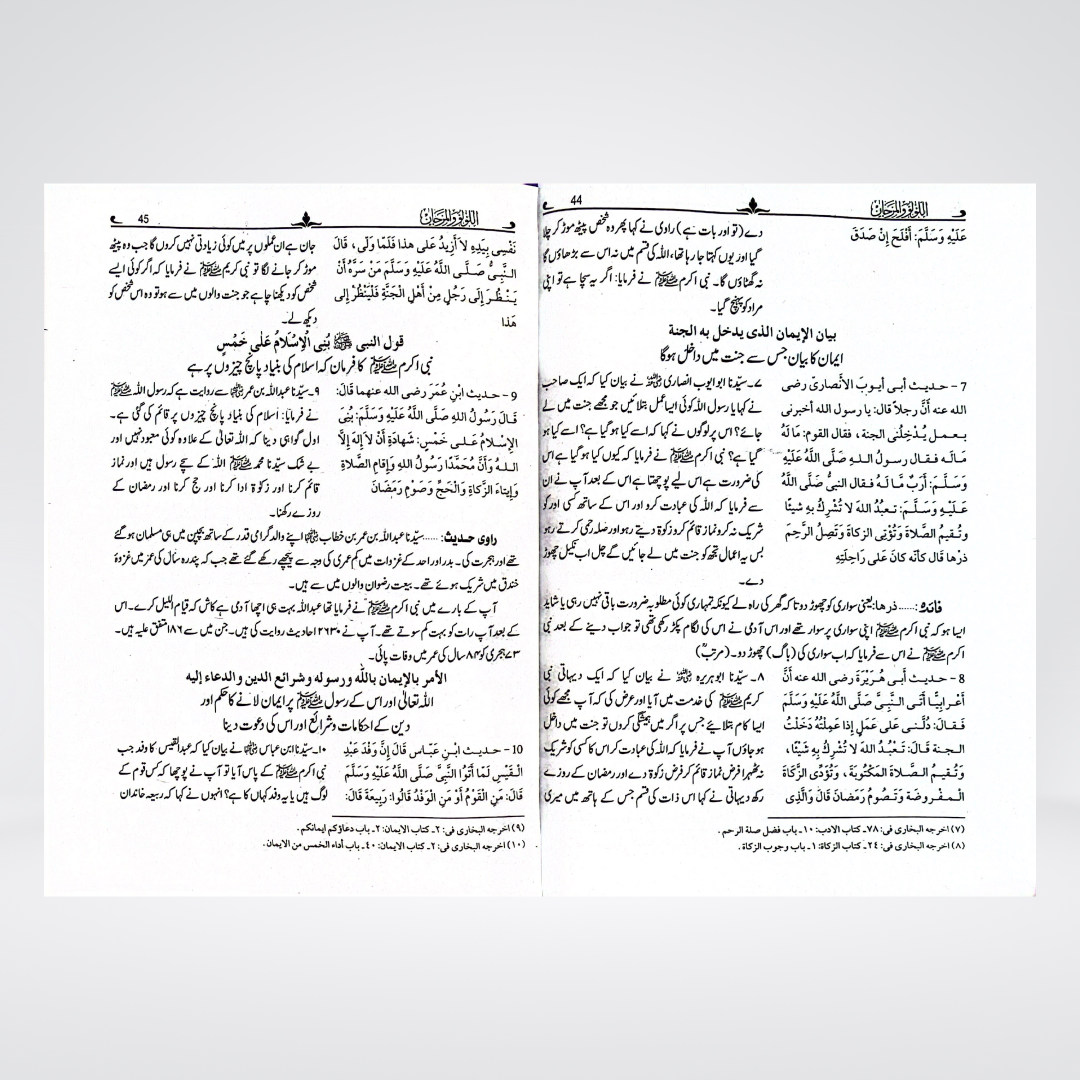 44
اللؤلؤ والمرجان
عَلَيْهِ وَسَلَّمَ: أَفْلَحَ إِنْ صَدَقَ
دے (تو اور بات ہے) راوی نے کہا پھر وہ شخص پیٹھ موڑ کر چلا
گیا اور یوں کہتا جا رہا تھا، اللہ کی قسم میں نہ اس سے بڑھاؤں گا
نہ گھٹاؤں گا۔ نبی اکرم ﷺ نے فرمایا: اگر یہ سچا ہے تو اپنی
مراد کو پہنچ گیا۔
بيان الإيمان الذى يدخل به الجنة
ایمان کا بیان جس سے جنت میں داخل ہوگا
7 - حديث أبى أيوبَ الأنصارىّ رضى
الله عنه أنَّ رجلاً قال: يا رسول الله أخبرنى
بعمل يُدْخِلُنى الجنة، فقال القوم: مَا لَهُ
مَالَه فقال رسولُ اللهِ صَلَّى اللَّهُ عَلَيْهِ
وَسَلَّمَ: أَرَبٌ مَّا لَهُ فقال النبىُّ صَلَّى اللَّهُ
عَلَيْهِ وَسَلَّمَ: تعبُدُ اللهَ لا تُشْرِكُ بِهِ شيئًا
وتُقيمُ الصَّلاةَ وَتُؤْتِى الزكاةَ وَتَصِلُ الرحِمَ
ذرها قال كأنّه كانَ عَلى رَاحِلَتِهِ
۷۔ سیّدنا ابوایوب انصاری رضی اللہ عنہ نے بیان کیا کہ ایک صاحب
نے کہا یا رسول اللہ کوئی ایسا عمل بتلائیں جو مجھے جنت میں لے
جائے؟ اس پر لوگوں نے کہا کہ اسے کیا ہو گیا ہے؟ اسے کیا ہو
گیا ہے؟ نبی اکرم ﷺ نے فرمایا کہ کیوں کیا ہو گیا ہے اس
کی ضرورت ہے اس لیے پوچھتا ہے اس کے بعد آپ نے ان
سے فرمایا کہ اللہ کی عبادت کرو اور اس کے ساتھ کسی اور کو
شریک نہ کرو نماز قائم کرو زکوٰۃ دیتے رہو اور صلہ رحمی کرتے رہو
بس یہ اعمال تجھ کو جنت میں لے جائیں گے چل اب نکیل چھوڑ
دے۔
فائدہ:...... ذرھا: یعنی سواری کو چھوڑ دو تا کہ گھر کی راہ لے کیونکہ تمہاری کوئی مطلوبہ ضرورت باقی نہیں رہی یا شاید
ایسا ہو کہ نبی اکرم ﷺ اپنی سواری پر سوار تھے اور اس آدمی نے اس کی لگام پکڑ رکھی تھی تو جواب دینے کے بعد نبی
اکرم ﷺ نے اس سے فرمایا کہ اب سواری کی (باگ) چھوڑ دو۔ (مرتب)
8 - حديث أبى هُرَيْرَةَ رضى الله عنه أنَّ
أعْرابيًّا أتَى النَّبِىَّ صَلَّى اللَّهُ عَلَيْهِ وَسَلَّمَ
فقالَ: دُلَّنى على عَمَلٍ إذا عمِلْتُهُ دَخَلْتُ
الجنةَ قالَ: تَعْبُدُ اللهَ لا تُشْرِكُ بِهِ شَيْئًا،
وتُقيمُ الصَّلاةَ المَكْتُوبةَ، وَتُؤَدِّى الزَّكاةَ
المفْروضةَ وتَصُومُ رَمَضانَ قالَ وَالَّذِى
۸۔ سیّدنا ابوہریرہ رضی اللہ عنہ نے بیان کیا کہ ایک دیہاتی نبی
کریم ﷺ کی خدمت میں آیا اور عرض کی کہ آپ مجھے کوئی
ایسا کام بتلائیے جس پر اگر میں ہمیشگی کروں تو جنت میں داخل
ہو جاؤں آپ نے فرمایا کہ اللہ کی عبادت کر اس کا کسی کو شریک
نہ ٹھہرا فرض نماز قائم کر فرض زکوٰۃ دے اور رمضان کے روزے
رکھ دیہاتی نے کہا اس ذات کی قسم جس کے ہاتھ میں میری
(۷) اخرجه البخارى فى: ۷۸۔ كتاب الادب: ۱۰۔ باب فضل صلة الرحم .
(۸) اخرجه البخارى فى: ۲۴۔ كتاب الزكاة: ۱۔ باب وجوب الزكاة .
45
اللؤلؤ والمرجان
نَفْسِى بِيَدِهِ لاَ أَزِيدُ عَلَى هذا فَلَمَّا وَلّى، قَالَ
النبىُّ صَلَّى اللَّهُ عَلَيْهِ وَسَلَّمَ مَنْ سَرَّهُ أَنْ
يَنْظُرَ إِلَى رَجُلٍ مِنْ أَهْلِ الْجَنَّةِ فَلْيَنْظُرْ إِلى
هَذا
جان ہے ان عملوں پر میں کوئی زیادتی نہیں کروں گا جب وہ پیٹھ
موڑ کر جانے لگا تو نبی کریم ﷺ نے فرمایا کہ اگر کوئی ایسے
شخص کو دیکھنا چاہے جو جنت والوں میں سے ہو تو وہ اس شخص کو
دیکھ لے۔
قول النبى ﷺ بُنِىَ الْإِسْلَامُ عَلٰى خَمْسٍ
نبی اکرم ﷺ کا فرمان کہ اسلام کی بنیاد پانچ چیزوں پر ہے
9 - حديث ابنِ عُمَرَ رضى الله عنهما قَالَ:
قَالَ رَسُولُ اللهِ صَلَّى اللَّهُ عَلَيْهِ وَسَلَّمَ: بُنِىَ
الإِسْلامُ عَلى خَمْسٍ: شَهادَةِ أَنْ لا إِلهَ إِلاَّ
اللهُ وَأَنَّ مُحَمَّدًا رَسُولُ اللهِ وَإِقامِ الصَّلاةِ
وَإيتاءِ الزَّكاةِ وَالْحَجِّ وَصَوْمِ رَمَضَانَ
۹۔ سیّدنا عبداللہ بن عمر رضی اللہ عنہ سے روایت ہے کہ رسول اللہ ﷺ
نے فرمایا: اسلام کی بنیاد پانچ چیزوں پر قائم کی گئی ہے۔
اول گواہی دینا کہ اللہ تعالیٰ کے علاوہ کوئی معبود نہیں اور
بے شک سیّدنا محمد ﷺ اللہ کے سچے رسول ہیں اور نماز
قائم کرنا اور زکوٰۃ ادا کرنا اور حج کرنا اور رمضان کے
روزے رکھنا۔
راوی حدیث:...... سیّدنا عبداللہ بن عمر بن خطاب رضی اللہ عنہ اپنے والد گرامی قدر کے ساتھ بچپن میں ہی مسلمان ہو گئے
تھے اور ہجرت کی۔ بدر اور احد کے غزوات میں کم عمری کی وجہ سے پیچھے رکھے گئے تھے جب کہ پندرہ سال کی عمر میں غزوۂ
خندق میں شریک ہوئے تھے۔ بیعت رضوان والوں میں سے ہیں۔
آپ کے بارے میں نبی اکرم ﷺ نے فرمایا تھا عبداللہ بہت ہی اچھا آدمی ہے کاش کہ قیام اللیل کرے۔ اس
کے بعد آپ رات کو بہت کم سوتے تھے۔ آپ نے ۲۶۳۰ احادیث روایت کی ہیں۔ جن میں سے ۱۸۶ متفق علیہ ہیں۔
۷۳ ہجری کو ۸۴ سال کی عمر میں وفات پائی۔
الأمر بالإيمان بالله ورسوله وشرائع الدين والدعاء إليه
اللہ تعالیٰ اور اس کے رسول ﷺ پر ایمان لانے کا حکم اور
دین کے احکامات و شرائع اور اس کی دعوت دینا
10 - حديث ابنِ عبَاس قَالَ إِنَّ وَفْدَ عَبْدِ
الْقَيْسِ لَمَا أَتَوُا النَّبِىَّ صَلَّى اللَّهُ عَلَيْهِ وَسَلَّمَ
قَالَ: مَنِ الْقَوْمُ أَوْ مَنِ الْوَفْدُ قَالُوا: رَبِيعَةُ قَالَ:
۱۰۔ سیّدنا ابن عباس رضی اللہ عنہ نے بیان کیا کہ عبدالقیس کا وفد جب
نبی اکرم ﷺ کے پاس آیا تو آپ نے پوچھا کہ کس قوم کے
لوگ ہیں یا یہ وفد کہاں کا ہے؟ انہوں نے کہا کہ ربیعہ خاندان
(۹) اخرجه البخارى فى: ۲۔ كتاب الايمان: ۲۔ باب دعاؤكم ايمانكم .
(۱۰) اخرجه البخارى فى: ۲۔ كتاب الايمان: ۴۰۔ باب أداء الخمس من الايمان .